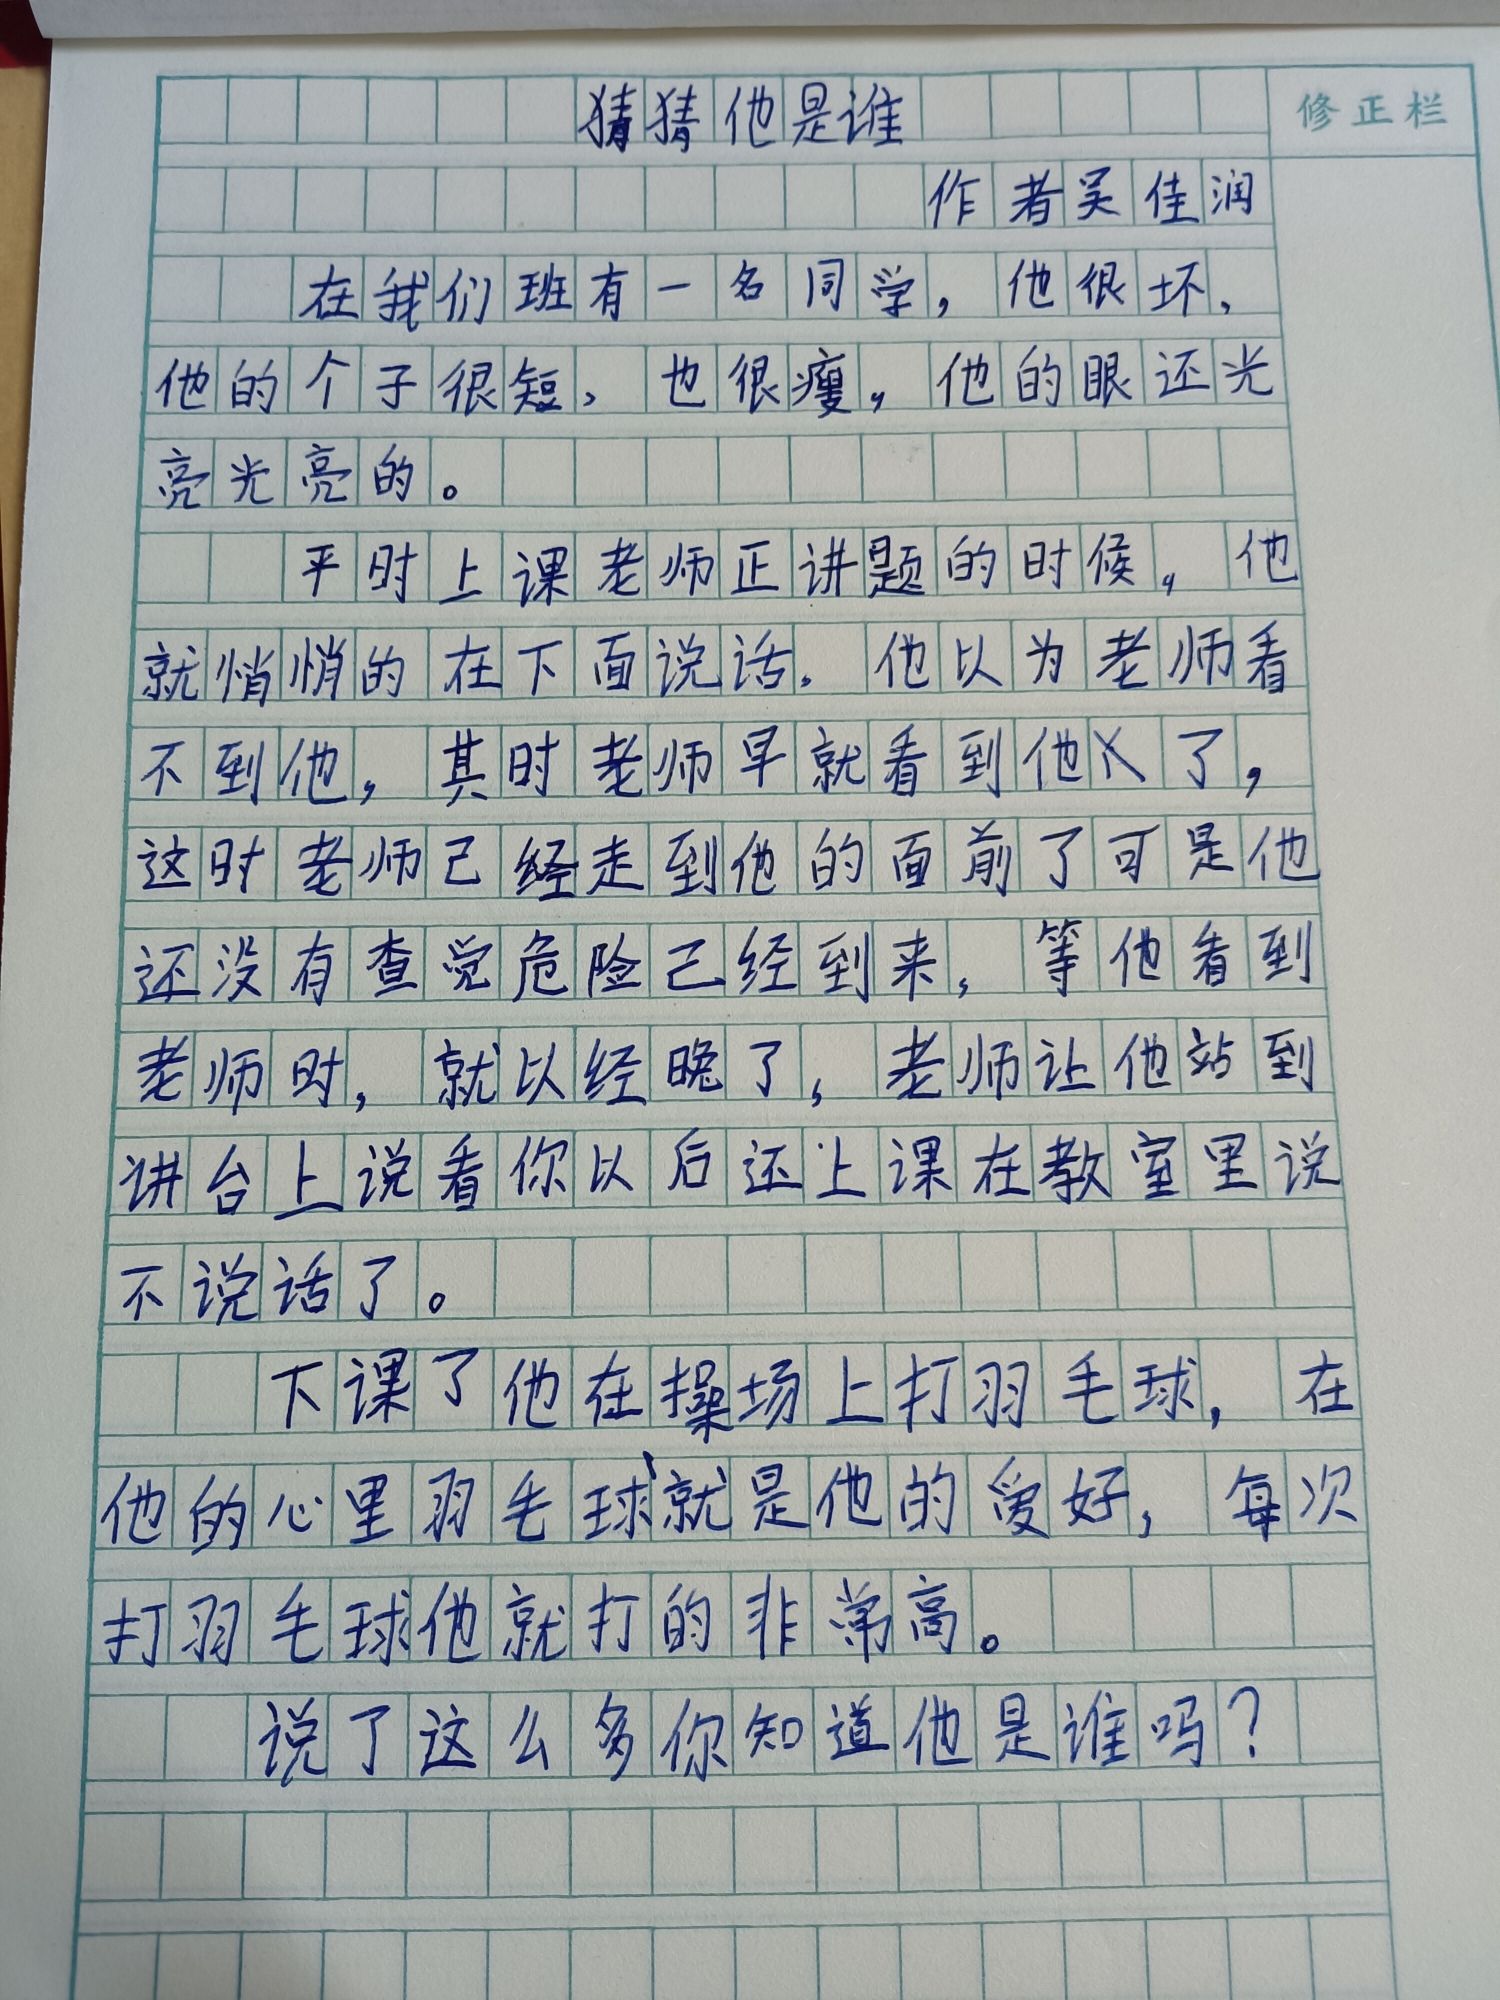 猜猜他是谁
修正栏
作者吴佳润
在我们班有一名同学，他很坏，
他的个子很短、也很瘦，他的眼还光
亮光亮的。
平时上课老师正讲题的时候，他
就悄悄的在下面说话．他以为老师看
不到他，其时老师早就看到他了，
这时老师己经走到他的面前了可是他
还没有查觉危险己经到来，等他看到
老师时，就以经晚了，老师让他站到
讲台上说看你以后还上课在教室里说
不说话了。
下课了他在操场上打羽毛球，在
他的心里羽毛球就是他的爱好，每次
打羽毛球他就打的非常高。
说了这么多你知道他是谁吗？